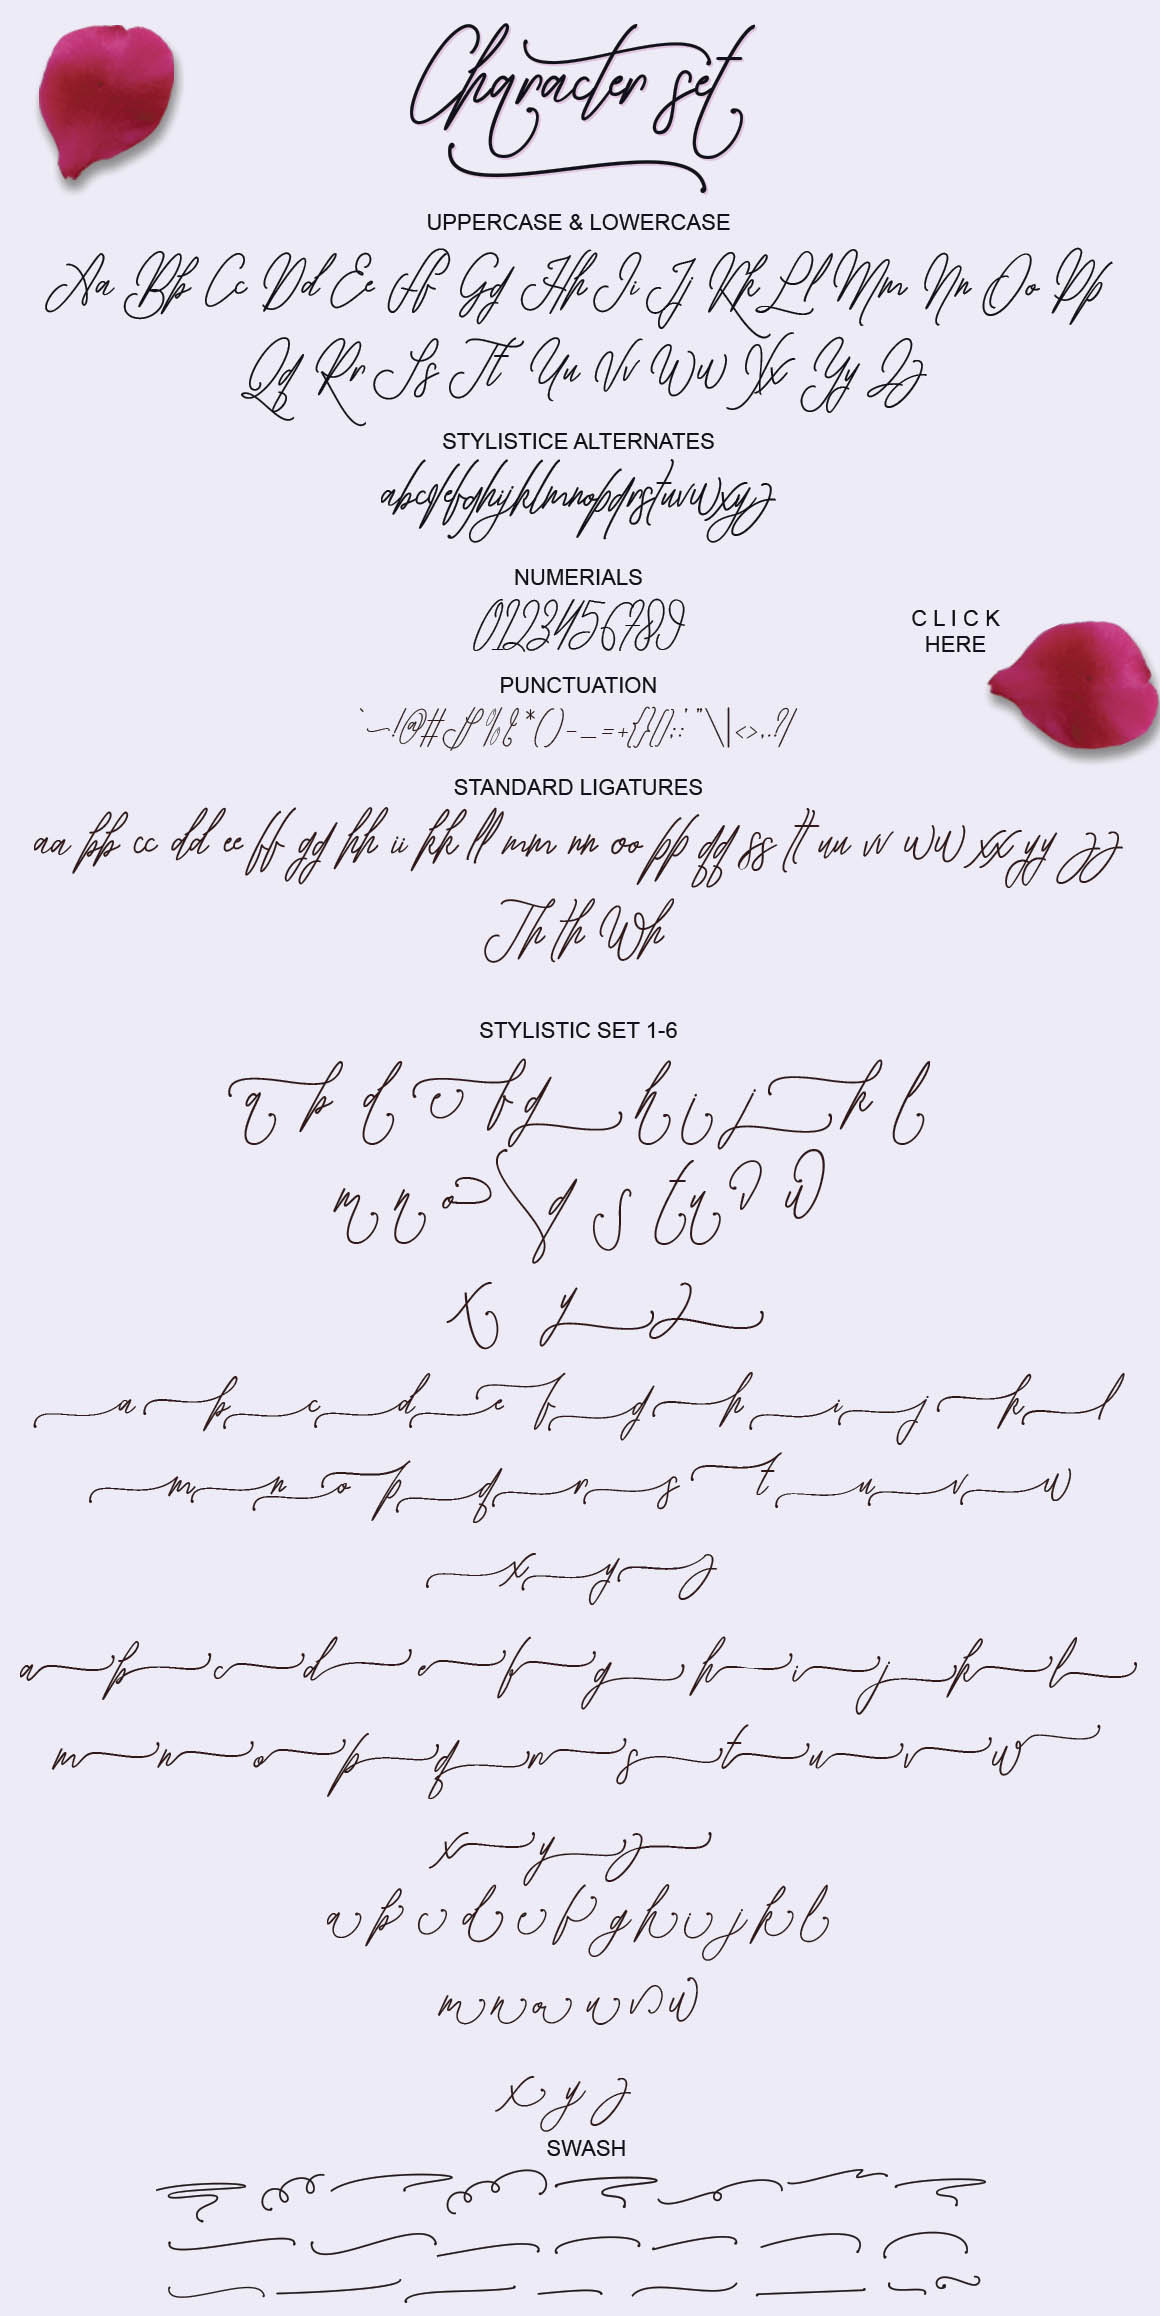 Character set
UPPERCASE & LOWERCASE
Aa Bb Cc Dd Ee Ff Gg Hh Ii Jj Kk Ll Mm Nn Oo Pp
Qq Rr Ss Tt Uu Vv Ww Xx Yy Zz
STYLISTICE ALTERNATES
abcdefghijklmnopqrstuvwxyz
NUMERIALS
0123456789
CLICK
HERE
PUNCTUATION
`~!@#$%&*()-_=+{}[];:'"\|<>,.?/
STANDARD LIGATURES
aa bb cc dd ee ff gg hh ii kk ll mm nn oo pp qq ss tt uu vv ww xx yy zz
Th th Wh
STYLISTIC SET 1-6
a b d e f g h i j k l
m n o q s t u v w
x y z
a b c d e f g h i j k l
m n o p q r s t u v w
x y z
a b c d e f g h i j k l
m n o p q r s t u v w
x y z
a b c d e f g h i j k l
m n o u v w
x y z
SWASH